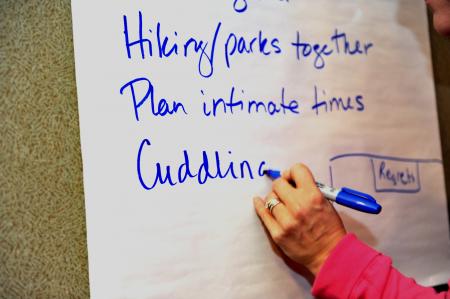 Hiking/parks together
Plan intimate times
Cuddling
Regrets